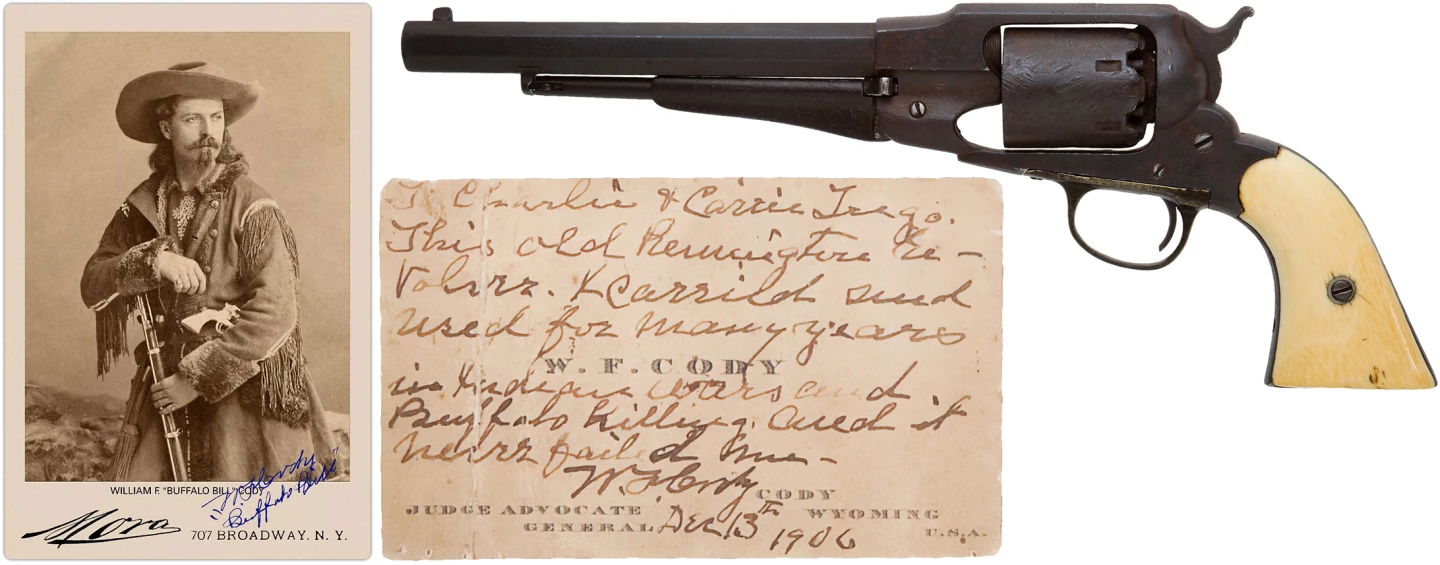 WILLIAM F. "BUFFALO BILL" CODY
W.F. Cody
"Buffalo Bill"
Mora
707 BROADWAY. N. Y.
To Charlie & Carrie Trego.
This old Remington Re-
volver. I carried and
used for many years
W. F. CODY
in Indian wars and
Buffalo Killing. and it
never failed me-
W. F. Cody
CODY
JUDGE ADVOCATE
WYOMING
GENERAL
U.S.A.
Dec 13th
1906